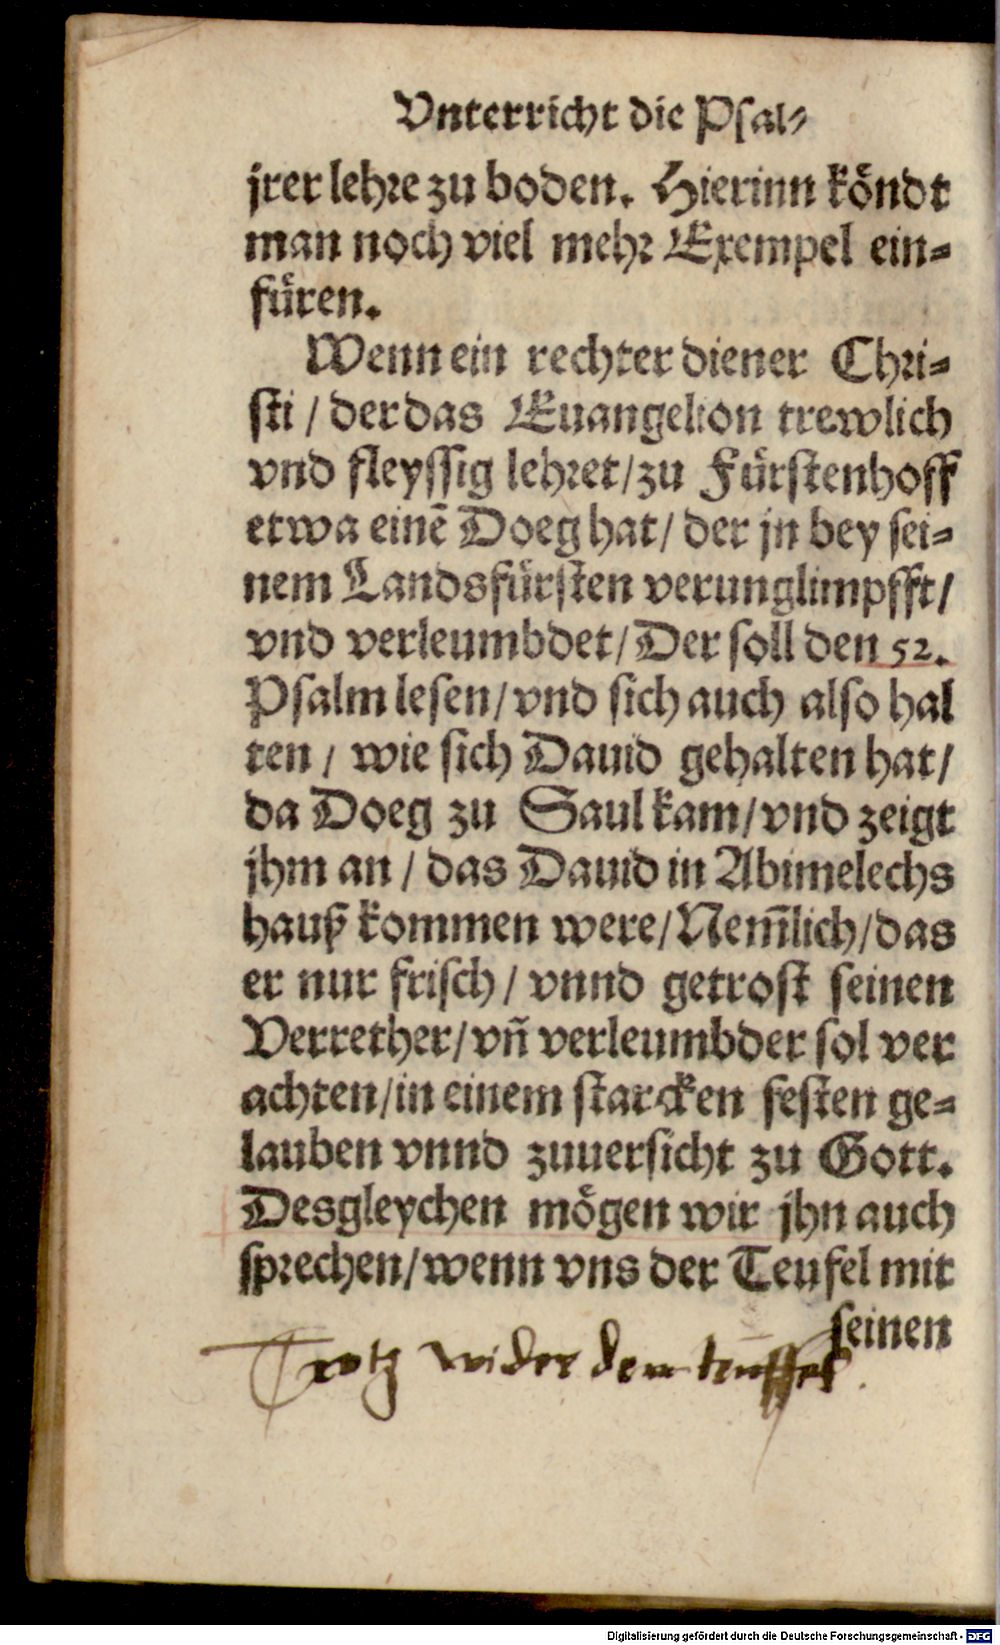 Vnterricht die Psal⸗
jrer lehre zu boden. Hierinn koͤndt
man noch viel mehr Exempel ein⸗
fuͤren.
Wenn ein rechter diener Chri⸗
sti / der das Euangelion trewlich
vnd fleyssig lehret/zu Fuͤrstenhoff
etwa einē Doeg hat/ der jn bey sei⸗
nem Landsfuͤrsten verunglimpfft/
vnd verleumbdet/Der soll den 52.
Psalm lesen/vnd sich auch also hal
ten / wie sich Dauid gehalten hat/
da Doeg zu Saul kam/vnd zeigt
jhm an / das Dauid in Abimelechs
hauß kommen were/Nem̄lich/das
er nur frisch / vnnd getrost seinen
Verrether/vn̄ verleumbder sol ver
achten/in einem starcken festen ge⸗
lauben vnnd zuuersicht zu Gott.
Desgleychen moͤgen wir jhn auch
sprechen/wenn vns der Teufel mit
seinen
Trotz wider den teuffel
Digitalisierung gefördert durch die Deutsche Forschungsgemeinschaft - DFG